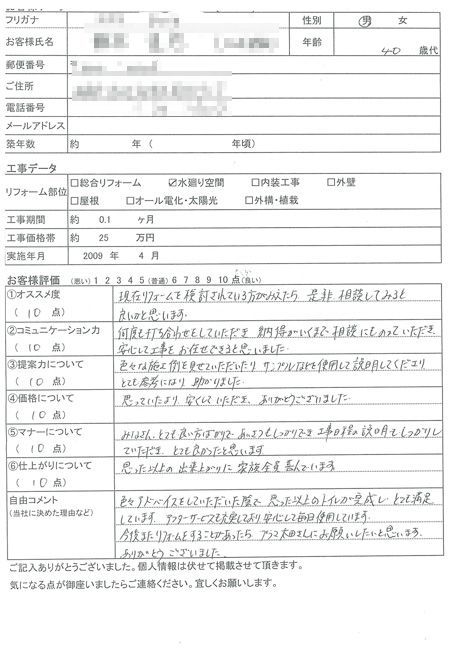 フリガナ 性別 男 女
お客様氏名 年齢 40 歳代
郵便番号
ご住所
電話番号
メールアドレス
築年数 約 年 ( 年頃)
工事データ
リフォーム部位 □総合リフォーム ☑水廻り空間 □内装工事 □外壁
□屋根 □オール電化・太陽光 □外構・植栽
工事期間 約 0.1 ヶ月
工事価格帯 約 25 万円
実施年月 2009 年 4 月
お客様評価 (悪い) 1 2 3 4 5 (普通) 6 7 8 9 10 点 (良い)
①オススメ度 現在リフォームを検討されている方がおみえたら 是非 相談してみると
( 10 点) 良いかと思います。
②コミュニケーション力 何度も打ち合わせをしていただき 納得がいくまで相談にものっていただき、
( 10 点) 安心して工事をお任せできると思いました。
③提案力について 色々な施工例を見せていただいたり サンプルなどを使用して説明してくださり
( 10 点) とても参考になり 助かりました。
④価格について 思っていたより 安くしていただき、ありがとうございました。
( 10 点)
⑤マナーについて みなさん、とても良い方ばかりで、あいさつもしっかりでき 工事日程の説明もしっかりし
( 10 点) ていただき、とても良かったと思います。
⑥仕上がりについて 思った以上の出来上がりに 家族全員 喜んでいます。
( 10 点)
自由コメント 色々アドバイスをしていただいた陰で 思った以上のトイレが完成し とても満足
(当社に決めた理由など) しています。アフターサービスも充実しており 安心して毎日使用しています。
今後またリフォームをすることがあったら、プラマ太田さんにお願いしたいと思います。
ありがとうございました。
ご記入ありがとうございました。個人情報は伏せて掲載させて頂きます。
気になる点が御座いましたらご連絡ください。宜しくお願いします。